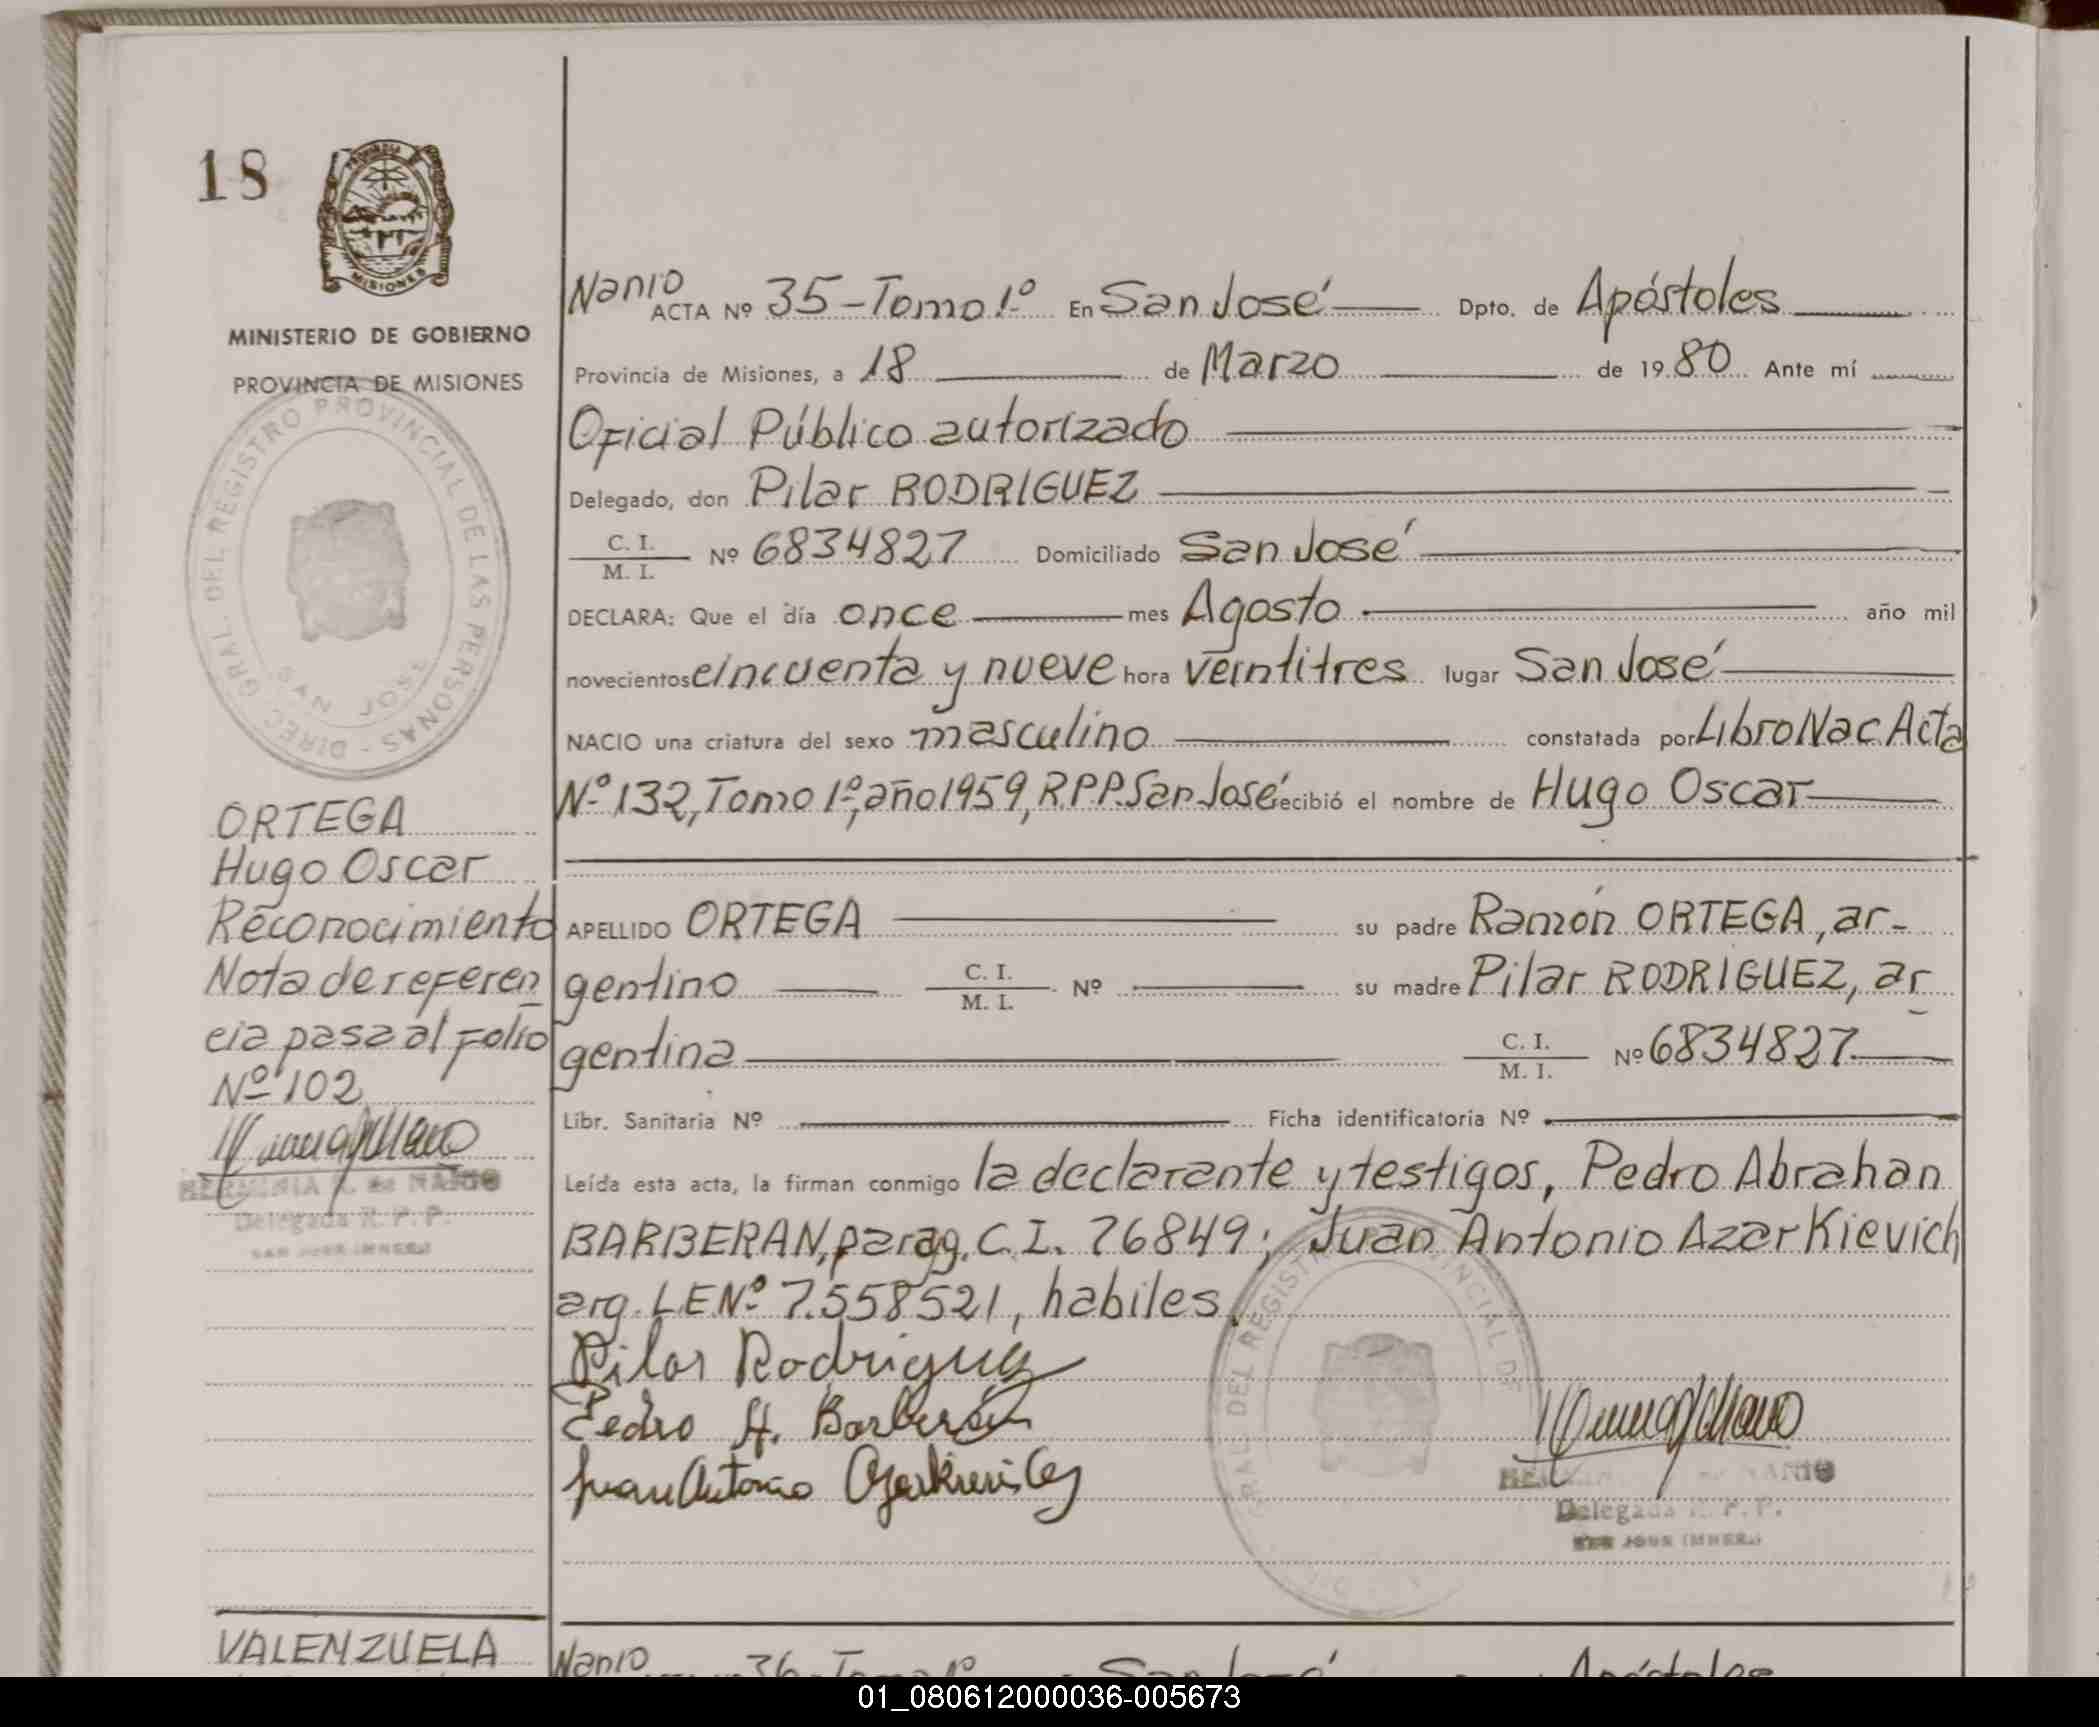 18
PROVINCIA
MISIONES
MINISTERIO DE GOBIERNO
PROVINCIA DE MISIONES
DIREC. GRAL. DEL REGISTRO PROVINCIAL DE LAS PERSONAS -
SAN JOSE
ORTEGA
Hugo Oscar
Reconocimiento
Nota de referen
cia pasa al folio
Nº 102
HERMINIA R. de NANIO
Delegada R. P. P.
VALENZUELA
Nanio
ACTA Nº 35 - Tomo 1º En San José Dpto. de Apóstoles
Provincia de Misiones, a 18 de Marzo de 1980 Ante mí
Oficial Público autorizado
Delegado, don Pilar RODRIGUEZ
C. I.
M. I. Nº 6834827 Domiciliado San José
DECLARA: Que el día once mes Agosto año mil
novecientos cincuenta y nueve hora veintitres lugar San José
NACIO una criatura del sexo masculino constatada por Libro Nac Acta
Nº 132, Tomo 1º, año 1959, R.P.P. San José recibió el nombre de Hugo Oscar
APELLIDO ORTEGA su padre Ramón ORTEGA, ar-
gentino C. I. M. I. Nº su madre Pilar RODRIGUEZ, ar
gentina C. I. M. I. Nº 6834827
Libr. Sanitaria Nº Ficha identificatoria Nº
Leída esta acta, la firman conmigo la declarante y testigos, Pedro Abrahan
BARBERAN, parag. C. I. 76849; Juan Antonio Azarkievich
arg. L.E Nº 7.558521, habiles.
Pilar Rodriguez
Pedro A. Barberán
Juan Antonio Azarkievich
GRAL. DEL REGISTRO PROVINCIAL DE
NANIO
Delegada R. P. P.
Nanio
36 - Tomo 1º San José Apóstoles
01_080612000036-005673